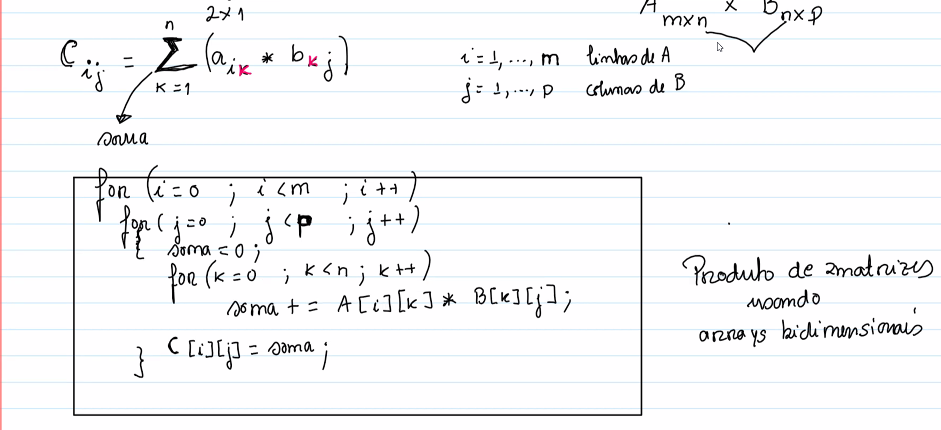 2x1
A m×n × B n×p
C ij = n Σ k=1 (a ik * b kj)
i = 1, ..., m linhas de A
j = 1, ..., p colunas de B
soma
for (i=0 ; i<m ; i++)
for( j=0 ; j<p ; j++)
{ soma = 0 ;
for (k=0 ; k<n ; k++)
soma += A[i][k] * B[k][j];
} C[i][j] = soma ;
Produto de 2 matrizes
usando
arrays bidimensionais